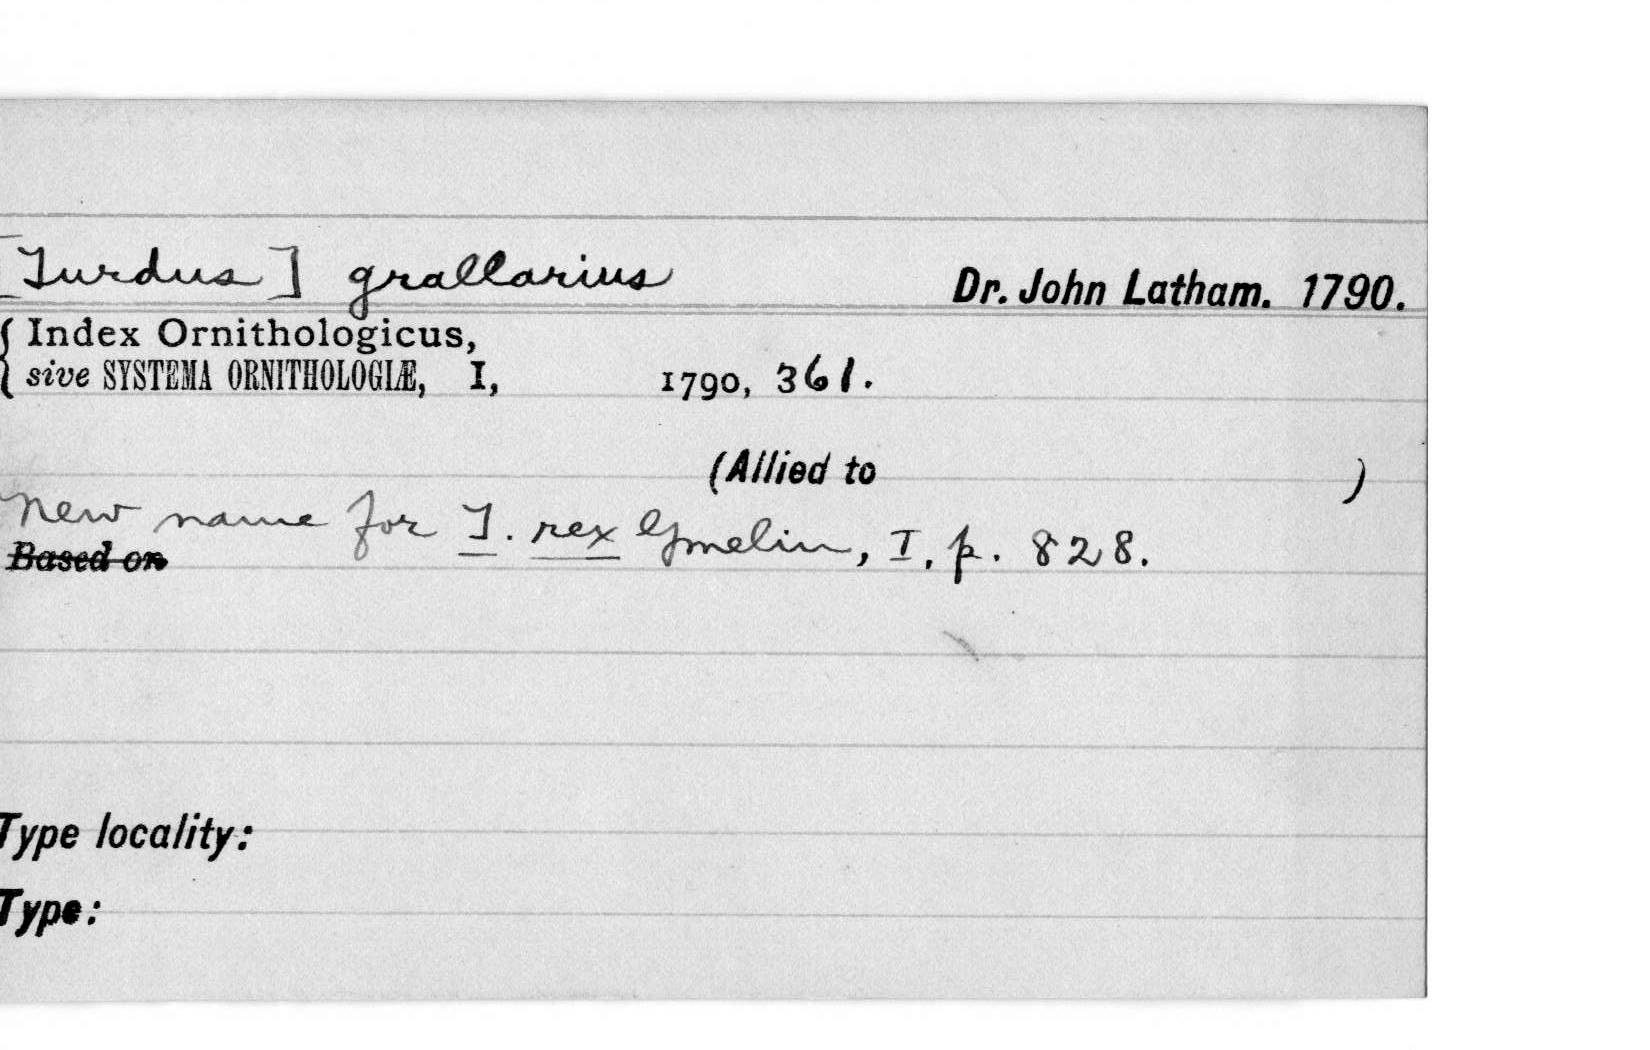 [Turdus] grallarius Dr. John Latham. 1790.
Index Ornithologicus,
sive SYSTEMA ORNITHOLOGIÆ, I, 1790, 361.
(Allied to )
New name for T. rex Gmelin, I, p. 828.
Based on
Type locality:
Type: